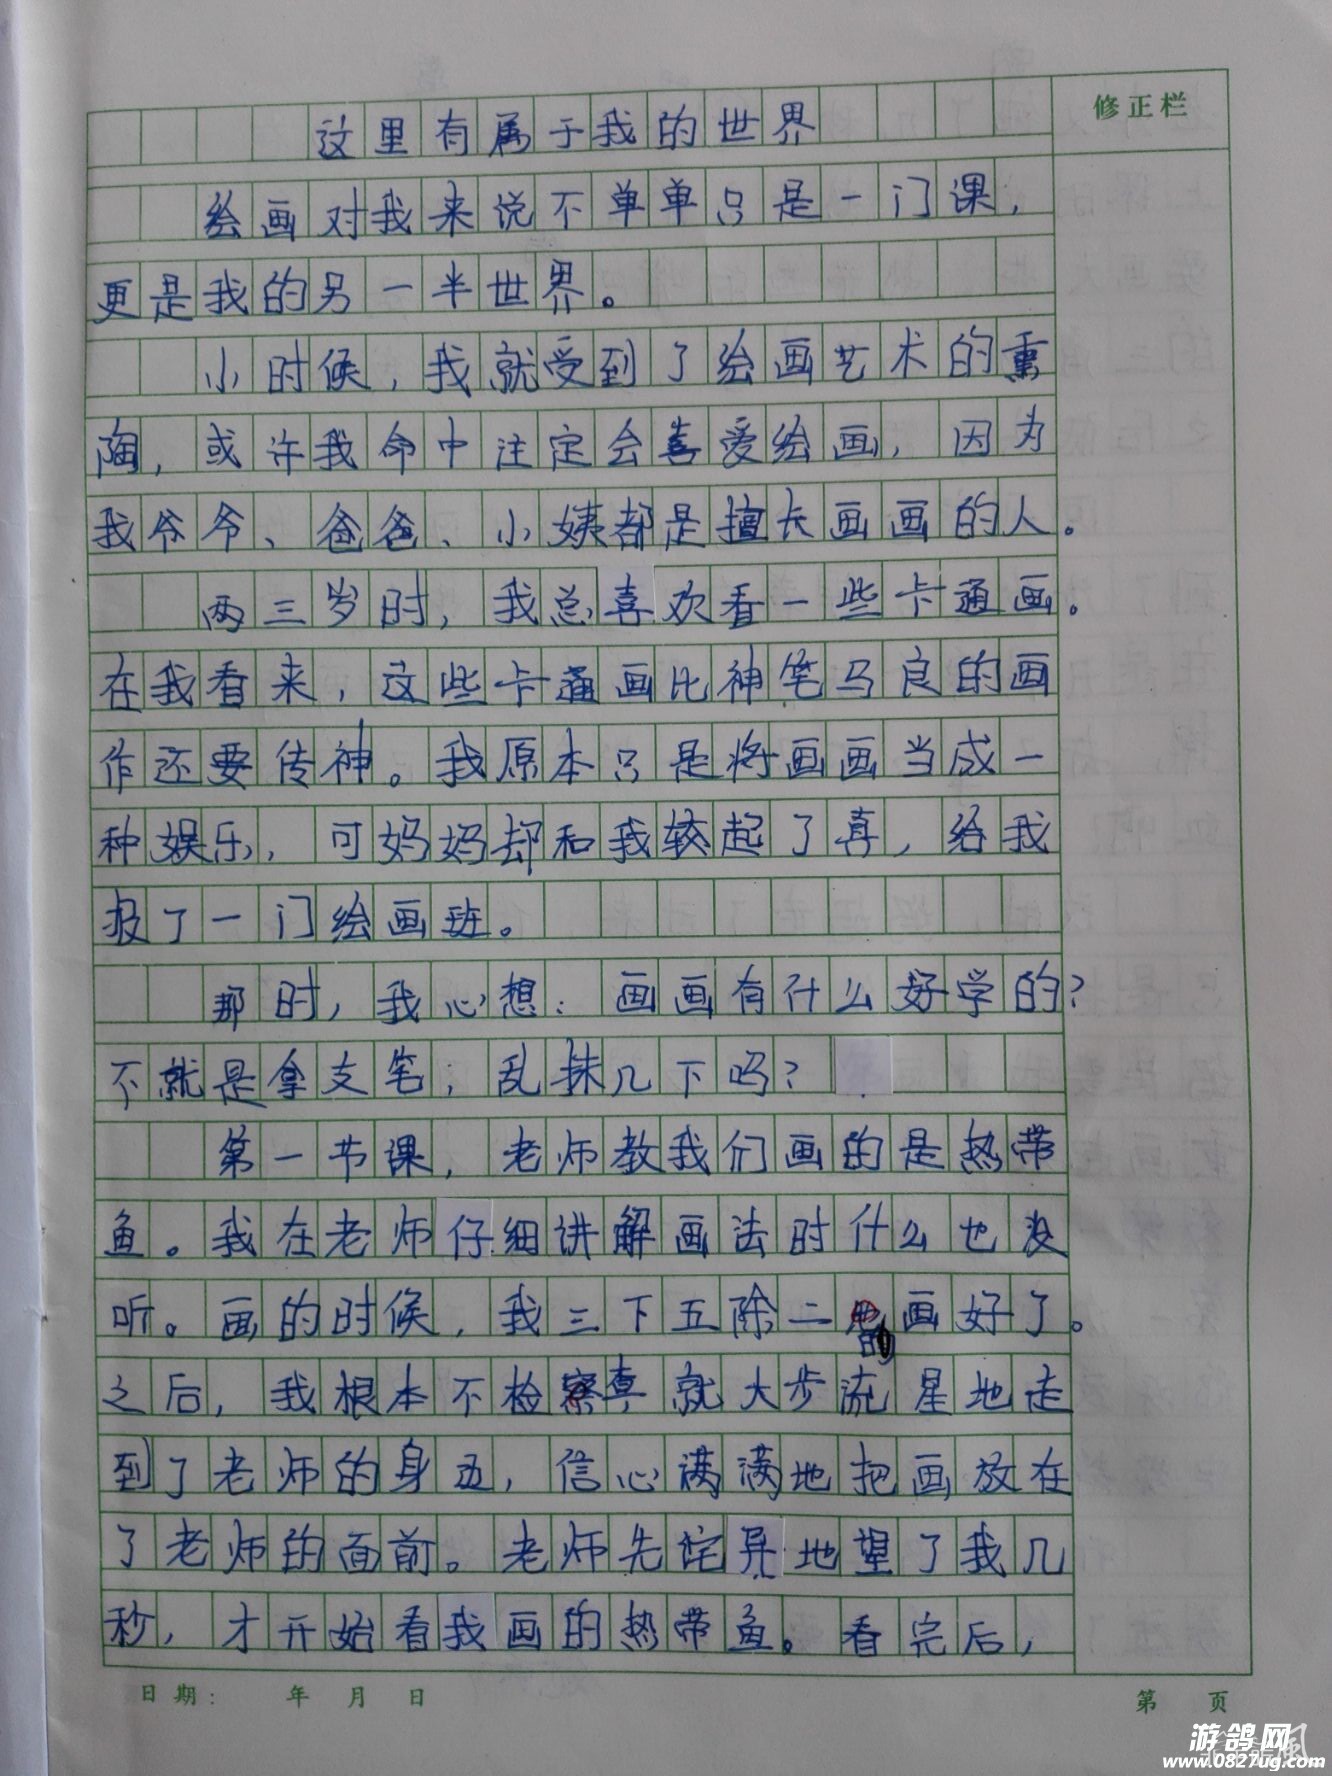 修正栏
这里有属于我的世界
绘画对我来说不单单只是一门课，
更是我的另一半世界。
小时候，我就受到了绘画艺术的熏
陶，或许我命中注定会喜爱绘画，因为
我爷爷、爸爸、小姨都是擅长画画的人。
两三岁时，我总喜欢看一些卡通画。
在我看来，这些卡通画比神笔马良的画
作还要传神。我原本只是将画画当成一
种娱乐，可妈妈却和我较起了真，给我
报了一门绘画班。
那时，我心想：画画有什么好学的？
不就是拿支笔，乱抹几下吗？
第一节课，老师教我们画的是热带
鱼。我在老师仔细讲解画法时什么也没
听。画的时候，我三下五除二的画好了。
之后，我根本不检查就大步流星地走
到了老师的身边，信心满满地把画放在
了老师的面前。老师先诧异地望了我几
秒，才开始看我画的热带鱼。看完后，
日期： 年 月 日 第 页
游鸽网
www.0827ug.com